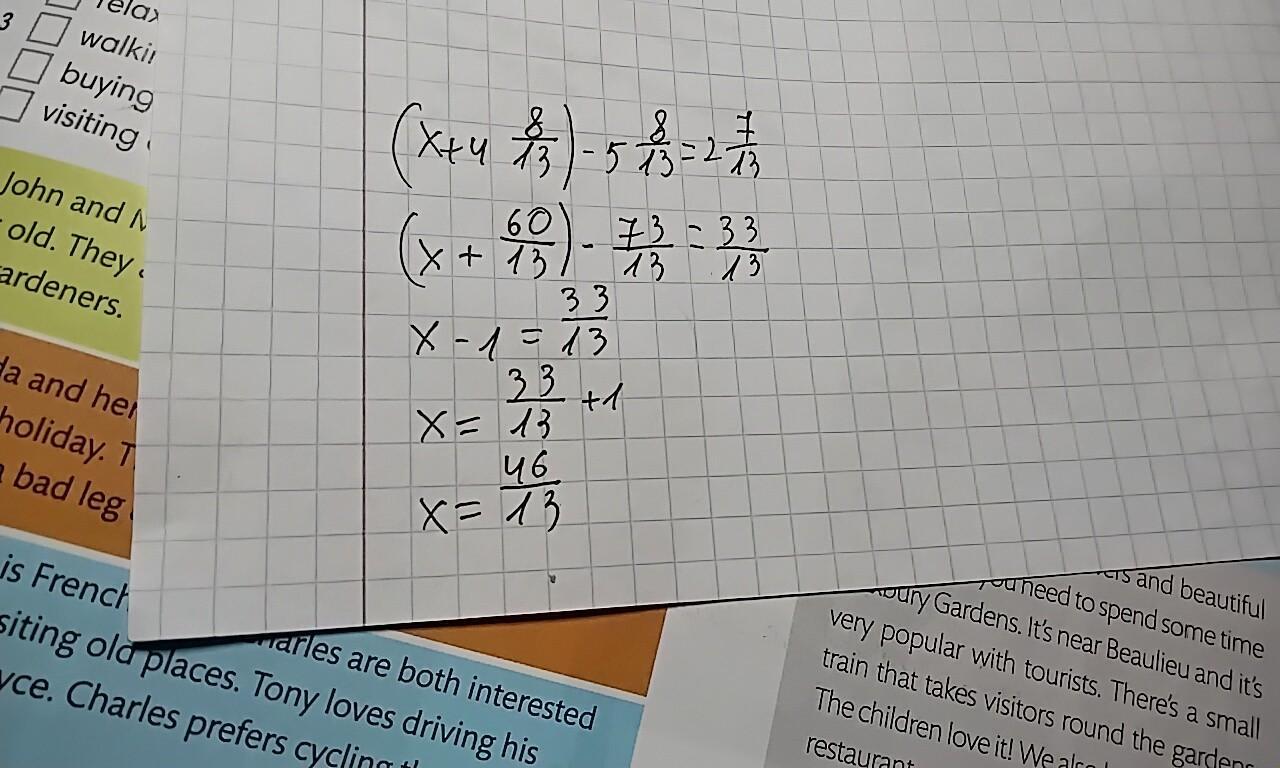 relax
3 walki
buying
visiting
John and
old. They
ardeners.
da and her
holiday. T
bad leg
is French
siting old places. Tony loves driving his
harles are both interested
yce. Charles prefers cycling
(x+4 8/13) - 5 8/13 = 2 7/13
(x + 60/13) - 73/13 = 33/13
x - 1 = 33/13
x = 33/13 + 1
x = 46/13
ers and beautiful
you need to spend some time
xbury Gardens. It's near Beaulieu and it's
very popular with tourists. There's a small
train that takes visitors round the gardens
The children love it! We also
restaurant